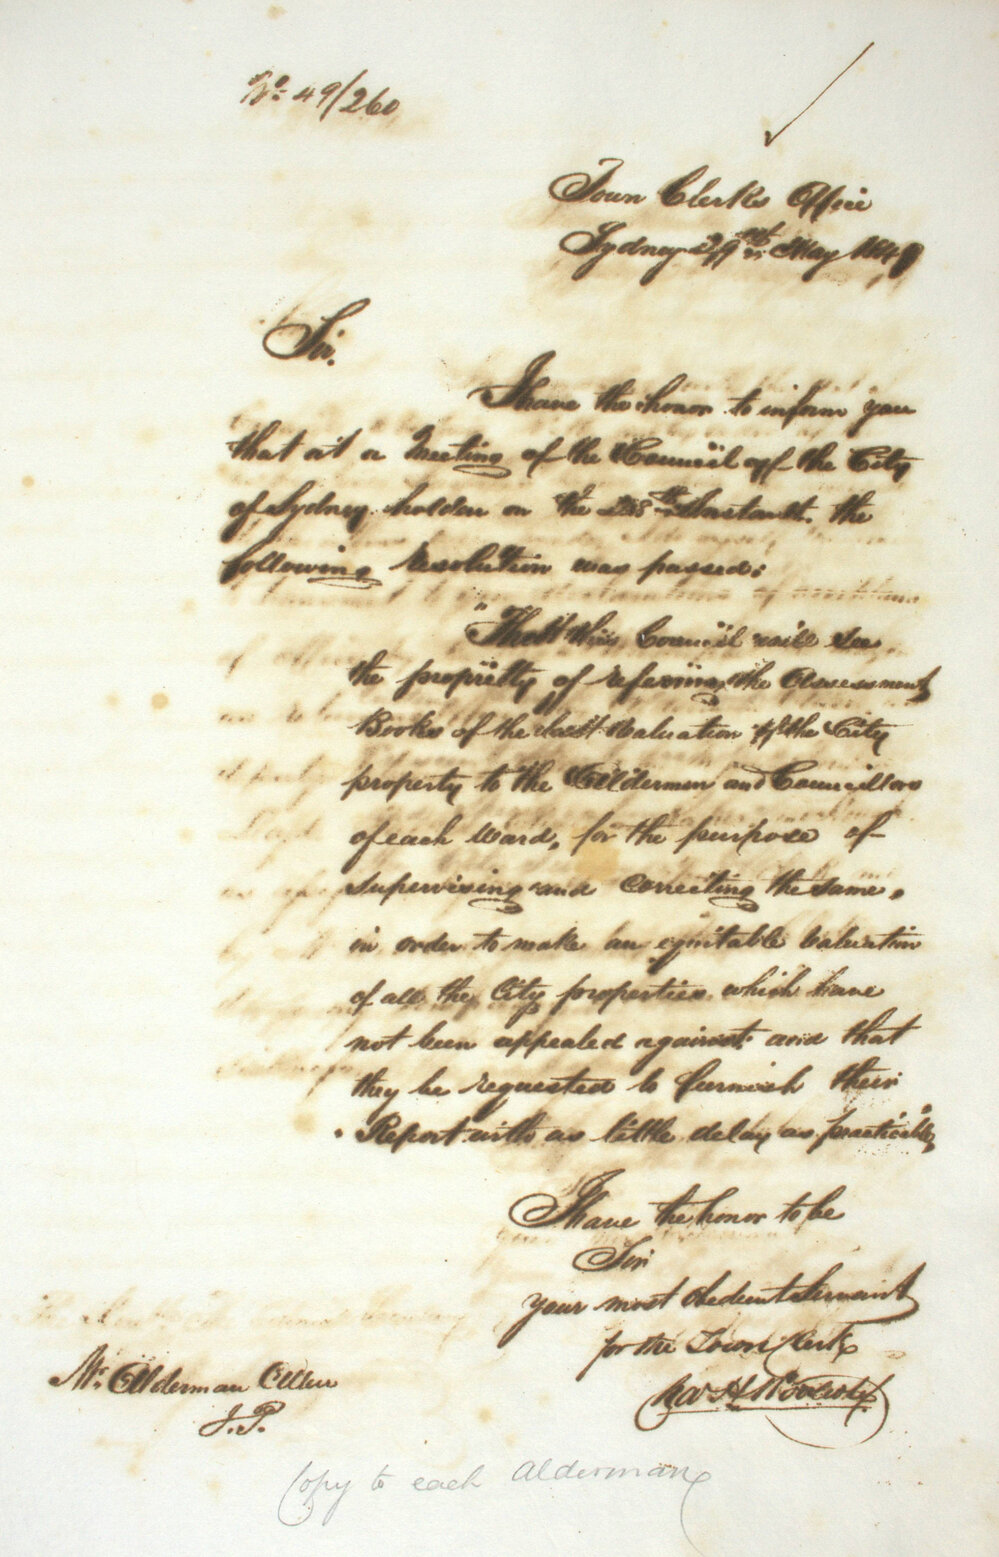 No. 49/260
Town Clerks Office
Sydney 29th May 1849
Sir.
I have the honor to inform you
that at a Meeting of the Council of the City
of Sydney holden on the 28th Instant. the
following resolution was passed:
"That this Council will see
the propriety of referring the Assessment
Books of the last valuation of the City
property to the Aldermen and Councillors
of each Ward, for the purpose of
supervising and correcting the same,
in order to make an equitable valuation
of all the City properties which have
not been appealed against; and that
they be requested to furnish their
Report with as little delay as practicable"
I have the honor to be
Sir
your most obedient Servant
for the Town Clerk
Mr. Alderman Allen
J.P.
Copy to each Alderman